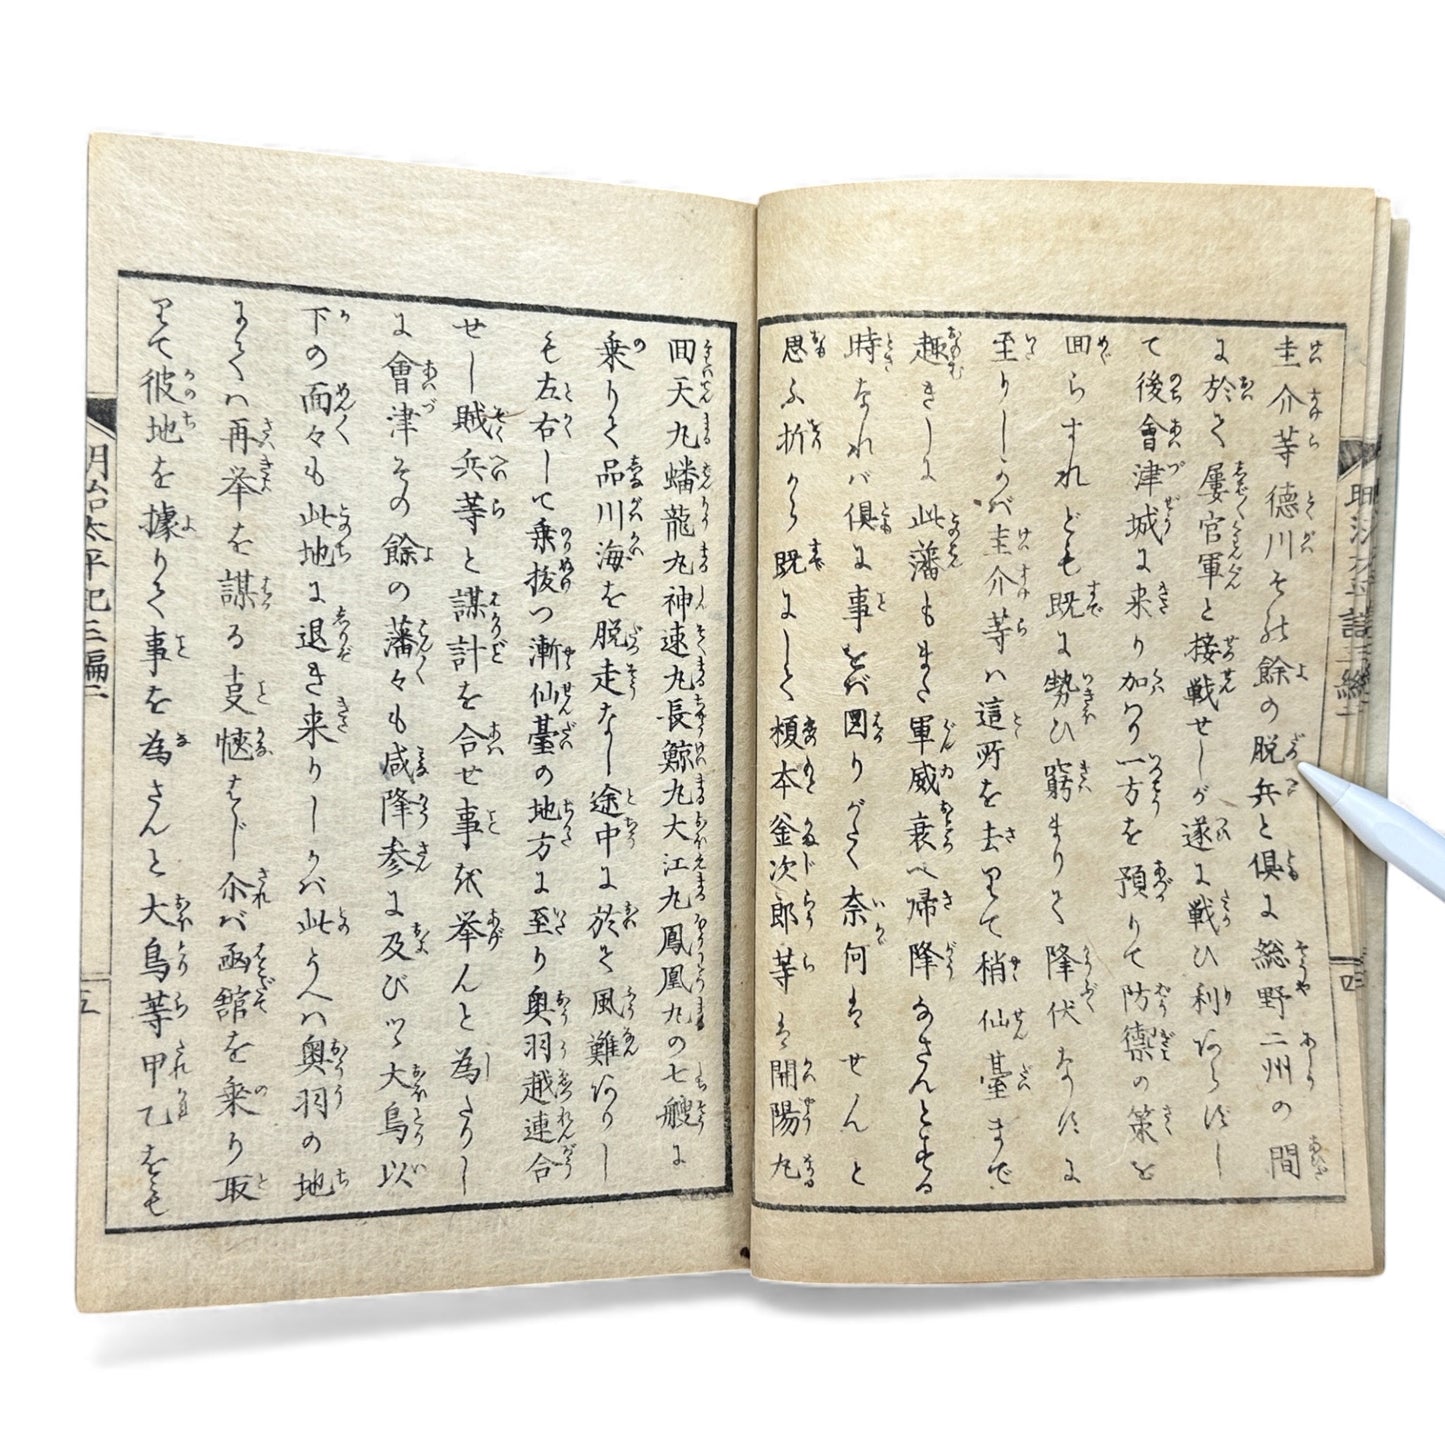 圭介等徳川その餘の脱兵と倶に総野二州の間
に於て屡官軍と接戦せしが遂に戦ひ利あらずし
て後會津城に来り加はり一方を預りて防禦の策を
回らすれども既に勢ひ窮まりて降伏なすに
至りしかば圭介等は這所を去りて稍仙臺まで
趣きしに此藩もまた軍威衰へ帰降なさんとする
時なれバ倶に事をば図りがたく奈何はせんと
思ふ折から既にして榎本釜次郎等は開陽丸
回天丸蟠龍丸神速丸長鯨丸大江丸鳳凰丸の七艘に
乗りて品川海を脱走なし途中に於て風難ありし
も左右して乗抜つ漸仙臺の地方に至り奥羽越連合
せし賊兵等と謀計を合せ事を挙んと為たりし
に會津その餘の藩々も咸降参に及びツ大鳥以
下の面々も此地に退き来りしかば此うへは奥羽の地
にては再挙を謀る支愜はじ尓ば函舘を乗り取
りて彼地を據りて事を為さんと大鳥等甲乙をも
明治太平記三編二
五
四